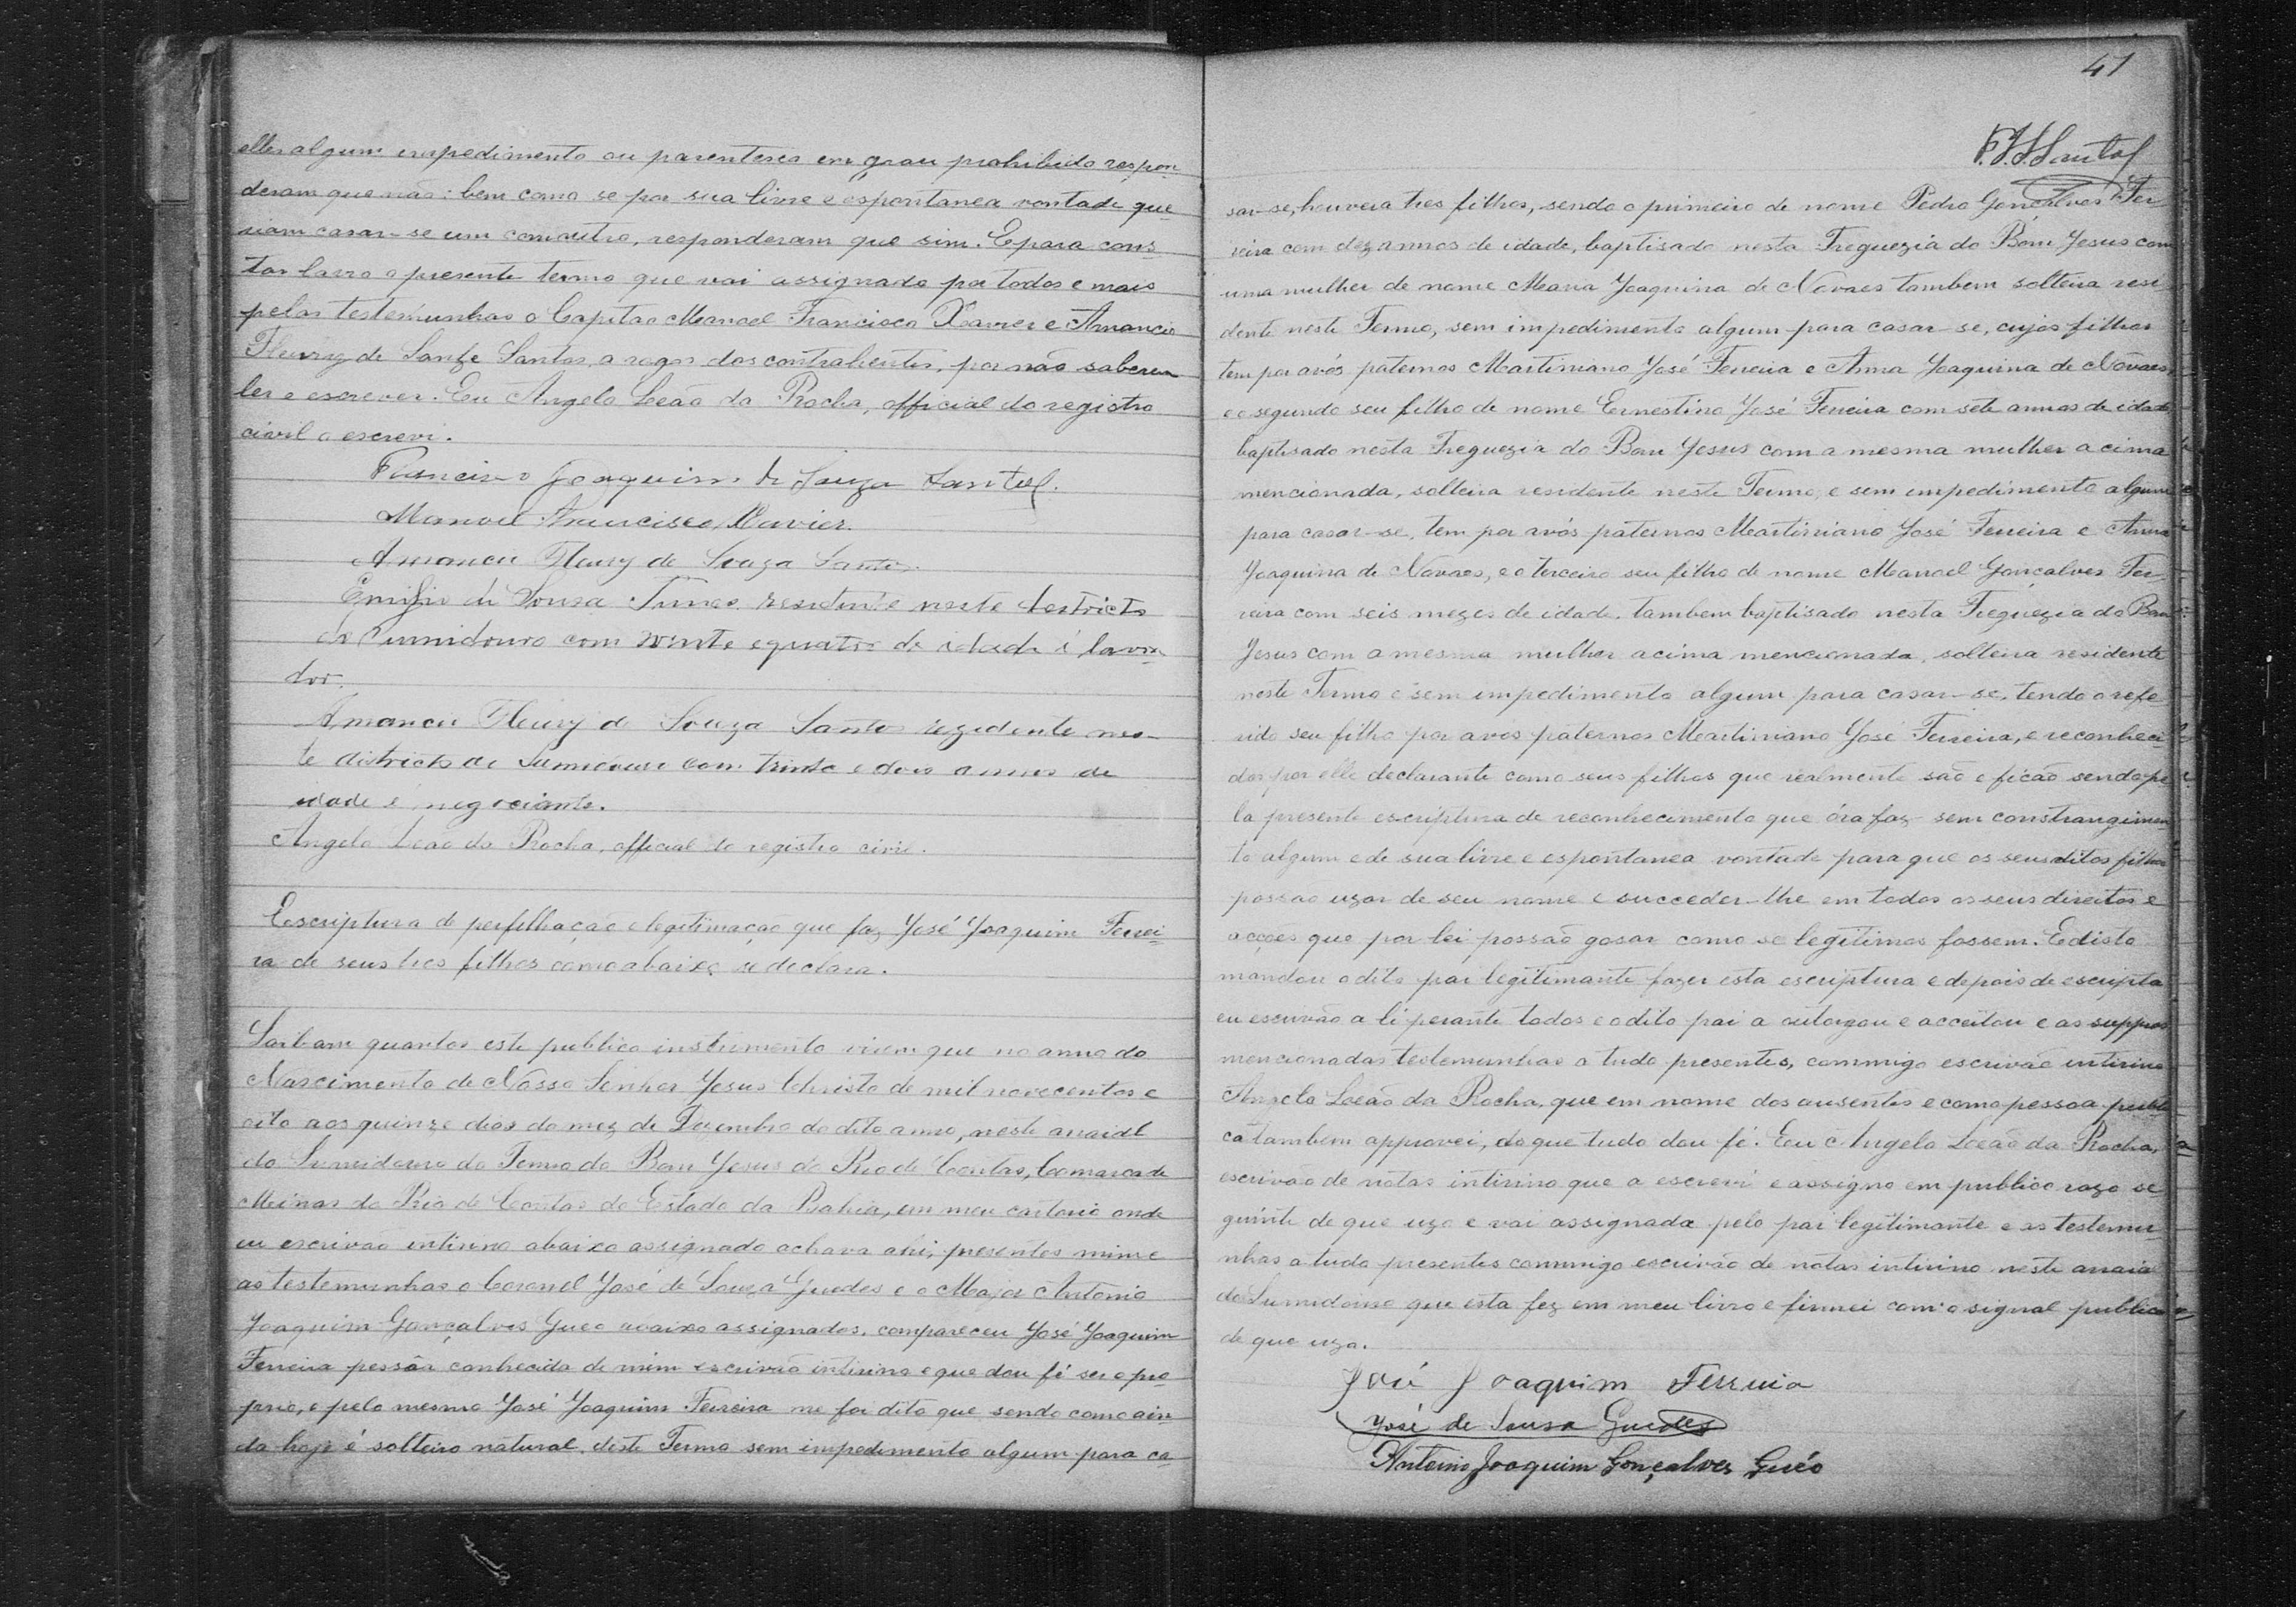 elles algum impedimento ou parentesco em grau prohibido respon
deram que não: bem como se por sua livre e espontanea vontade que
riam casar-se um com outro, responderam que sim. E para cons
tar lavro o presente termo que vai assignado por todos e mais
pelas testemunhas o Capitão Manoel Francisco Xavier e Amancio
Fleury de Souza Santos, a rogos dos contrahentes, por não saberem
ler e escrever. Eu Angelo Leão da Rocha, official do registro
civil o escrevi.
Francisco Joaquim de Souza Santos.
Manoel Francisco Xavier.
Amancio Fleury de Souza Santos.
de Sousa residente neste destricto
do Sumidouro com vinte e quatro de idade é lavra
dor.
Amancio Fleury de Souza Santos rezidente nes-
te districto de Sumidouro com trinta e dois annos de
idade é negociante.
Angelo Leão da Rocha, official do registro civil.
Escriptura de perfilhação e legitimação que faz José Joaquim Ferrei-
ra de seus tres filhos como abaixo se declara.
Saibam quantos este publico instrumento virem que no anno do
Nascimento de Nosso Senhor Jesus Christo de mil novecentos e
oito aos quinze dias do mez de Dezembro do dito anno, neste arraial
do Sumidouro do Termo do Bom Jesus do Rio de Contas, Comarca de
Minas do Rio de Contas do Estado da Bahia, em meu cartorio onde
eu escrivão intirino abaixo assignado achava ahi, presentes mim e
as testemunhas o Coronel José de Souza Guedes e o Major Antonio
Joaquim Gonçalves Guéo abaixo assignados, compareceu José Joaquim
Ferreira pessôa conhecida de mim escrivão intirino e que dou fé ser o pro-
prio, e pelo mesmo José Joaquim Ferreira me foi dito que sendo como ain-
da hoje é solteiro natural deste Termo sem impedimento algum para ca-
41
F.J.S.Santos
sar-se, houvera tres filhos, sendo o primeiro de nome Pedro Gonçalves Fer
reira com dez annos de idade, baptisado nesta Freguezia do Bom Jesus com
uma mulher de nome Maria Joaquina de Novaes tambem solteira resi
dente neste Termo, sem impedimento algum para casar-se, cujos filhos
tem por avós paternos Martiniano José Ferreira e Anna Joaquina de Novaes,
e o segundo seu filho de nome Ernestino José Ferreira com sete annos de idade
baptisado nesta Freguezia do Bom Jesus com a mesma mulher acima
mencionada, solteira residente neste Termo, e sem impedimento algum
para casar-se, tem por avós paternos Martiniano José Ferreira e Anna
Joaquina de Novaes, e o terceiro seu filho de nome Manoel Gonçalves Fer
reira com seis mezes de idade, tambem baptisado nesta Freguezia do Bom
Jesus com a mesma mulher acima mencionada, solteira residente
neste Termo e sem impedimento algum para casar-se, tendo o refe
rido seu filho por avós paternos Martiniano José Ferreira, e reconheci
dos por elle declarante como seus filhos que realmente são e ficão sendo pe
la presente escriptura de reconhecimento que óra faz sem constrangimen
to algum e de sua livre e espontanea vontade para que os seus ditos filhos
possão uzar de seu nome e succeder-lhe em todos os seus direitos e
acções que por lei possão gosar como se legitimos fossem. E disto
mandou o dito pai legitimante fazer esta escriptura e depois de escripta
eu escrivão a li perante todos e o dito pai a outorgou e acceitou e as suppras
mencionadas testemunhas a tudo presentes, commigo escrivão intirino
Angelo Leão da Rocha, que em nome dos ausentes e como pessoa publi-
ca tambem approvei, do que tudo dou fé. Eu Angelo Leão da Rocha,
escrivão de notas intirino que a escrevi e assigno em publico razo se
guinte de que uzo e vai assignada pelo pai legitimante e as testemu-
nhas a tudo presentes commigo escrivão de notas intirino neste arraia
do Sumidouro que esta fez em meu livro e firmei com o signal publico
de que uzo.
José Joaquim Ferreira
José de Sousa Guedes
Antonio Joaquim Gonçalves Guéo